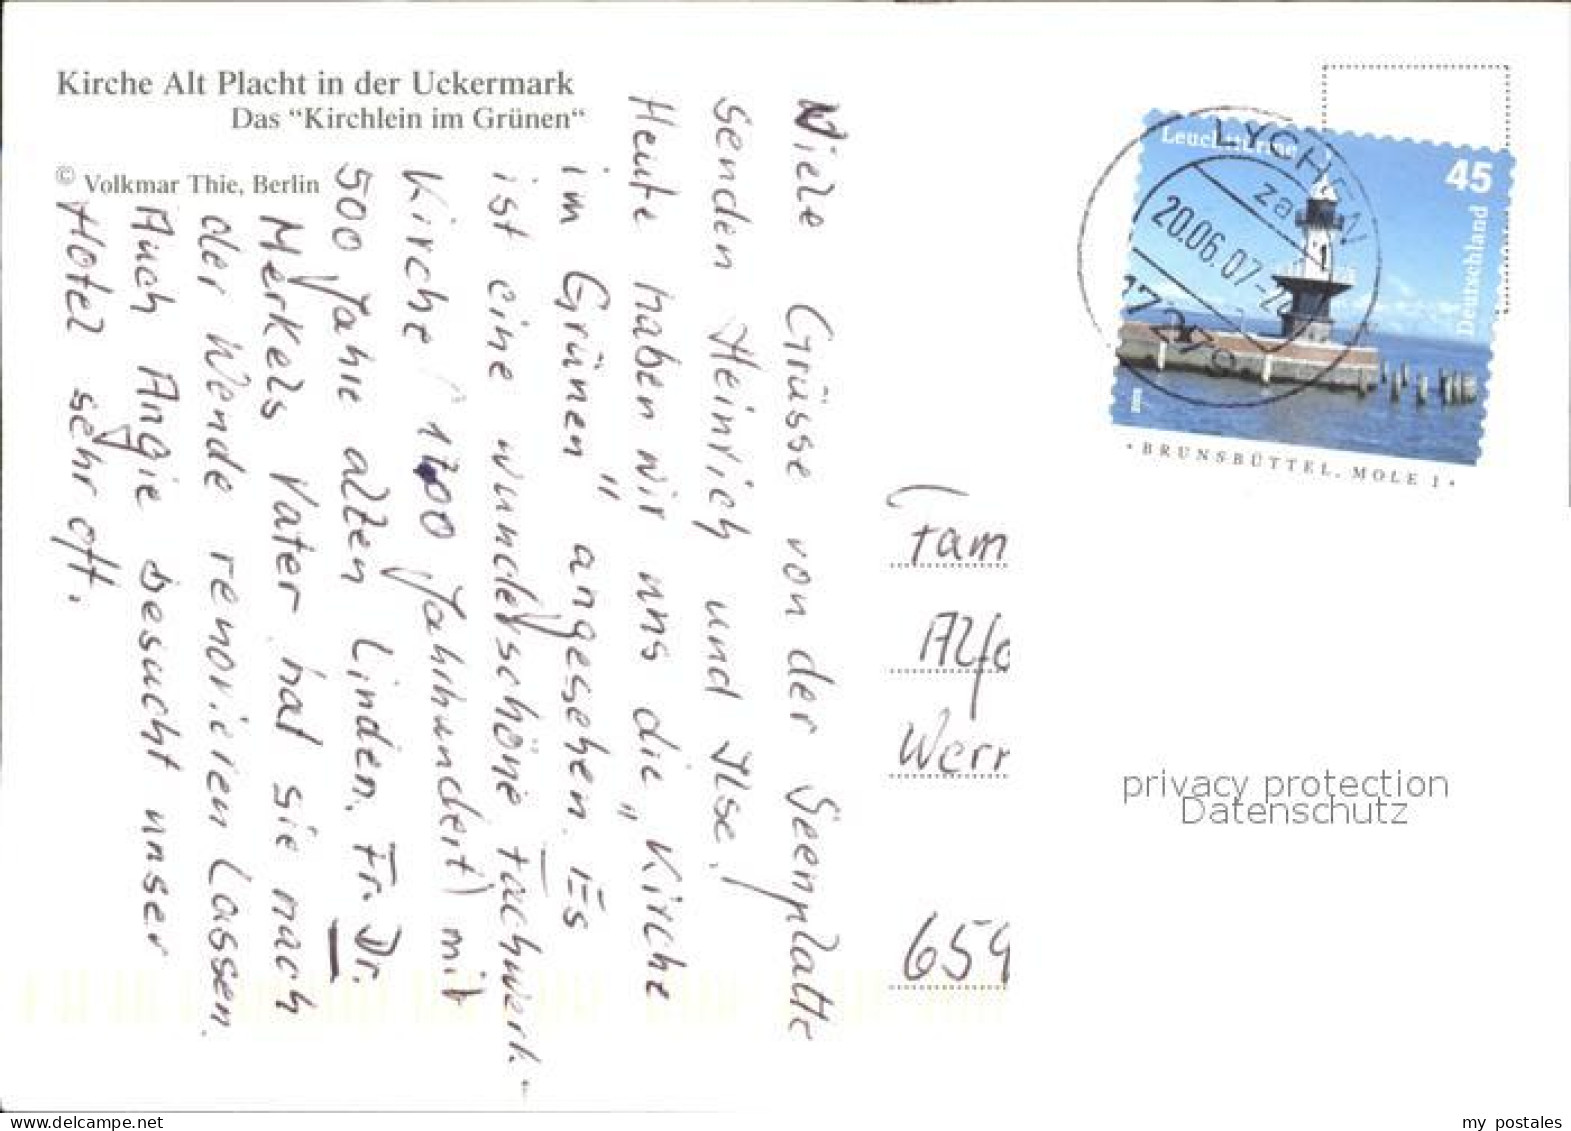 Kirche Alt Placht in der Uckermark
Das “Kirchlein im Grünen“
© Volkmar Thie, Berlin
Viele Grüsse von der Seenplatte
senden Heinrich und Ilse!
Heute haben wir uns die „Kirche
im Grünen" angesehen. Es
ist eine wunderschöne Fachwerk-
Kirche (1700 Jahrhundert) mit
500 Jahre alten Linden. Fr. Dr.
Merkels Vater hat sie nach
der Wende renovieren lassen.
Auch Angie besucht unser
Hotel sehr oft.
LYCHEN
20.06.07
Leuchttürme
45
Deutschland
• BRUNSBÜTTEL, MOLE 1 •
Fam
Alfo
Wern
659
privacy protection
Datenschutz
my postales
www.delcampe.net